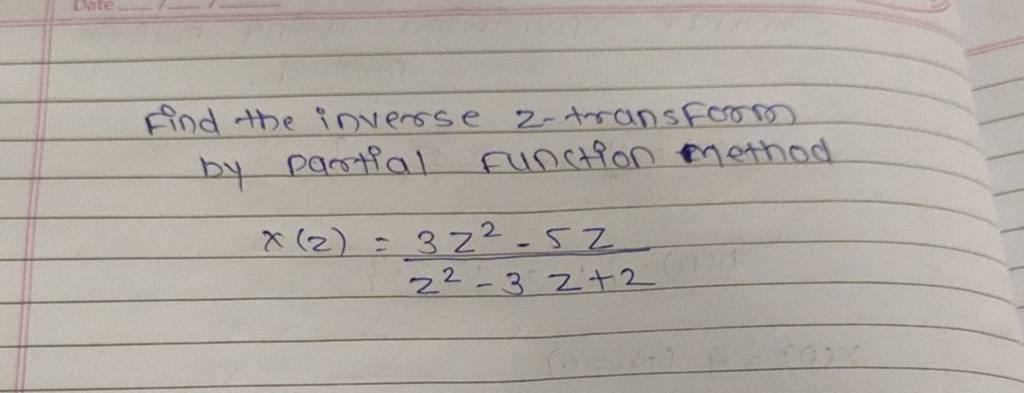 Date
Find the inverse z-transform
by partial function method
x(z) = 3z² - 5z
z² - 3z + 2